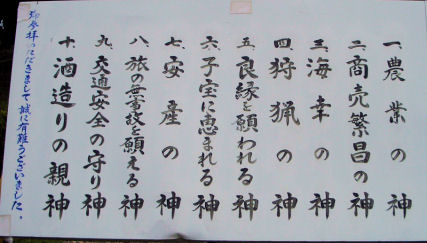 一、農業の神
二、商売繁昌の神
三、海幸の神
四、狩猟の神
五、良縁を願われる神
六、子宝に恵まれる神
七、安産の神
八、旅の無事故を願える神
九、交通安全の守り神
十、酒造りの親神
御参拝いただきまして誠に有難うございました。